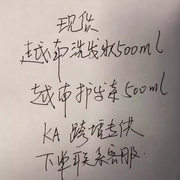 现供
越南洗发水500ml
越南护发素500ml
KA 跨境专供
下单联系客服.